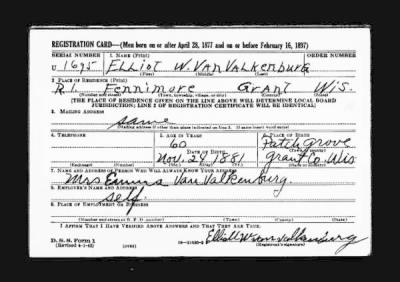 REGISTRATION CARD—(Men born on or after April 28, 1877 and on or before February 16, 1897)
SERIAL NUMBER 1. NAME (Print) ORDER NUMBER
U 1695 Elliot W. Van Valkenburg
(First) (Middle) (Last)
2. PLACE OF RESIDENCE (Print)
R.1. Fennimore Grant Wis.
(Number and street) (Town, township, village, or city) (County) (State)
[THE PLACE OF RESIDENCE GIVEN ON THE LINE ABOVE WILL DETERMINE LOCAL BOARD
JURISDICTION; LINE 2 OF REGISTRATION CERTIFICATE WILL BE IDENTICAL]
3. MAILING ADDRESS
same
[Mailing address if other than place indicated on line 2. If same insert word same]
4. TELEPHONE 5. AGE IN YEARS 6. PLACE OF BIRTH
60 Patch Grove
DATE OF BIRTH (Town or county)
Nov. 24 1881 Grant Co. Wis
(Exchange) (Number) (Mo.) (Day) (Yr.) (State or country)
7. NAME AND ADDRESS OF PERSON WHO WILL ALWAYS KNOW YOUR ADDRESS
Mrs Van Valkenburg.
8. EMPLOYER'S NAME AND ADDRESS
self.
9. PLACE OF EMPLOYMENT OR BUSINESS
(Number and street or R. F. D. number) (Town) (County) (State)
I AFFIRM THAT I HAVE VERIFIED ABOVE ANSWERS AND THAT THEY ARE TRUE.
D. S. S. Form 1
(Revised 4-1-42) (over) Elliott W van Valkenburg
(Registrant's signature)